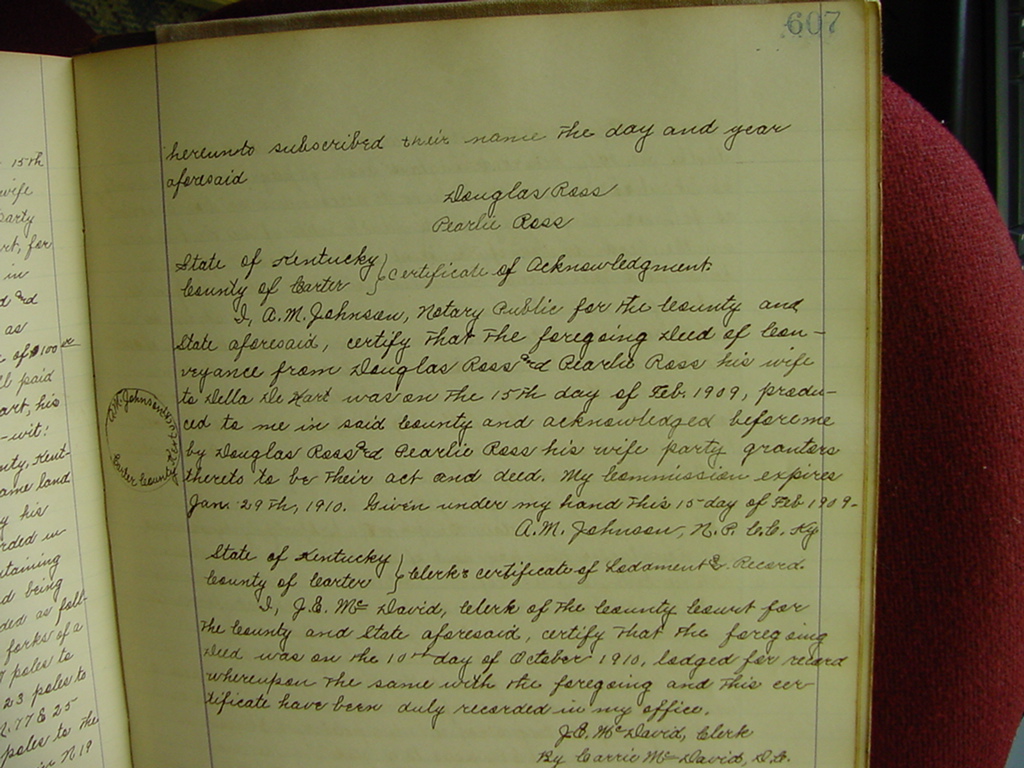 607
15th
wife
party
rt, for
in
as
of $100
paid
art, his
-wit:
nty, Kent-
ame land
y his
rded in
taining
d being
ded as foll-
forks of a
poles to
23 poles to
77 E 25
poles to the
N 19
hereunto subscribed their name the day and year
aforesaid
Douglas Ross
Pearlie Ross
State of Kentucky
County of Carter } Certificate of Acknowledgment.
I, A.M. Johnson, Notary Public for the County and
State aforesaid, certify that the foregoing Deed of Con-
veyance from Douglas Ross and Pearlie Ross his wife
to Della De Hart was on the 15th day of Feb. 1909, produ-
ced to me in said County and acknowledged before me
by Douglas Ross and Pearlie Ross his wife party grantors
thereto to be their act and deed. My Commission expires
Jan. 29th, 1910. Given under my hand this 15 day of Feb 1909-
A.M. Johnson, N.P. C.C. Ky
A.M. Johnson
Carter County
State of Kentucky
County of Carter } Clerk's certificate of Lodgment & Record.
I, J.E. Mc David, Clerk of the County Court for
the County and State aforesaid, certify that the foregoing
Deed was on the 10th day of October 1910, lodged for record
whereupon the same with the foregoing and this cer-
tificate have been duly recorded in my office.
J.E. Mc David, Clerk
By Carrie Mc David, D.C.